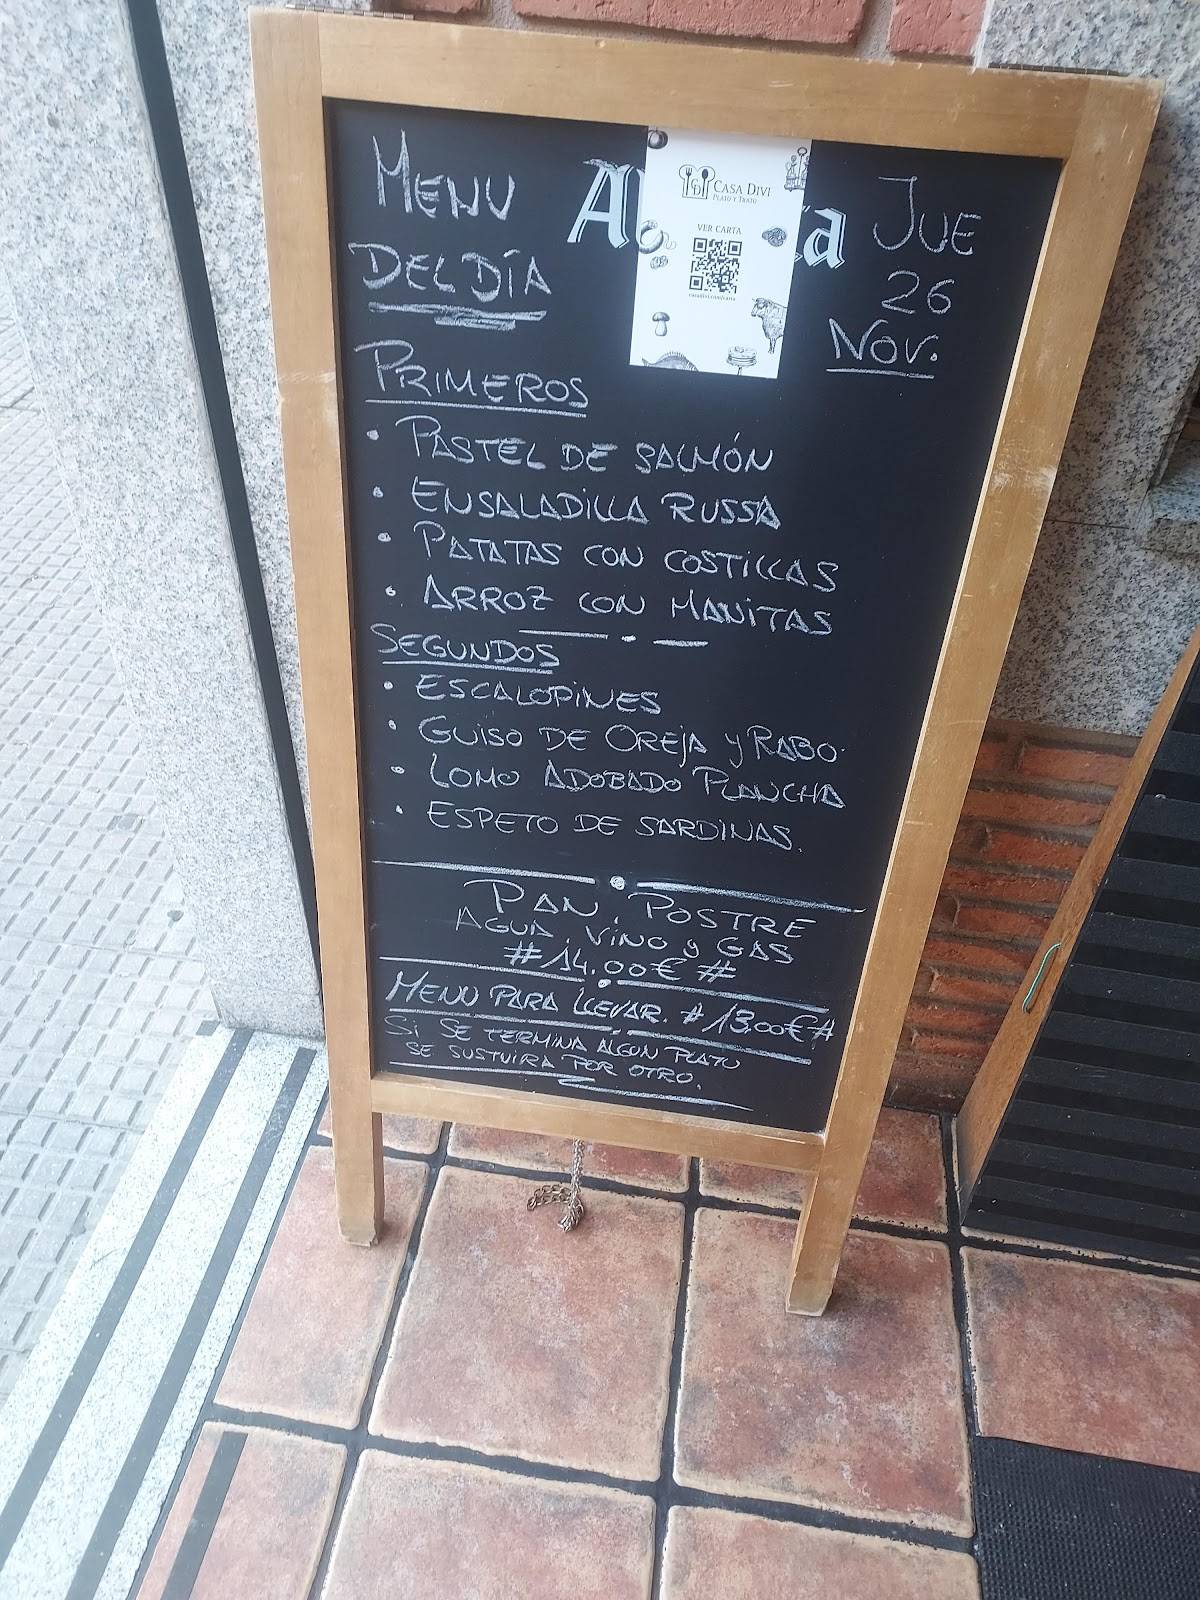 MENU
DEL DÍA
CASA DIVI
PLATO Y TRATO
VER CARTA
casadivi.com/carta
JUE
26
NOV.
PRIMEROS
• PASTEL DE SALMÓN
• ENSALADILLA RUSSA
• PATATAS CON COSTILLAS
• ARROZ CON MANITAS
SEGUNDOS
• ESCALOPINES
• GUISO DE OREJA Y RABO
• LOMO ADOBADO PLANCHA
• ESPETO DE SARDINAS.
PAN, POSTRE
AGUA, VINO y GAS
#14.00€#
MENU PARA LLEVAR. #13.00€#
SI SE TERMINA ALGUN PLATO
SE SUSTUIRA POR OTRO.